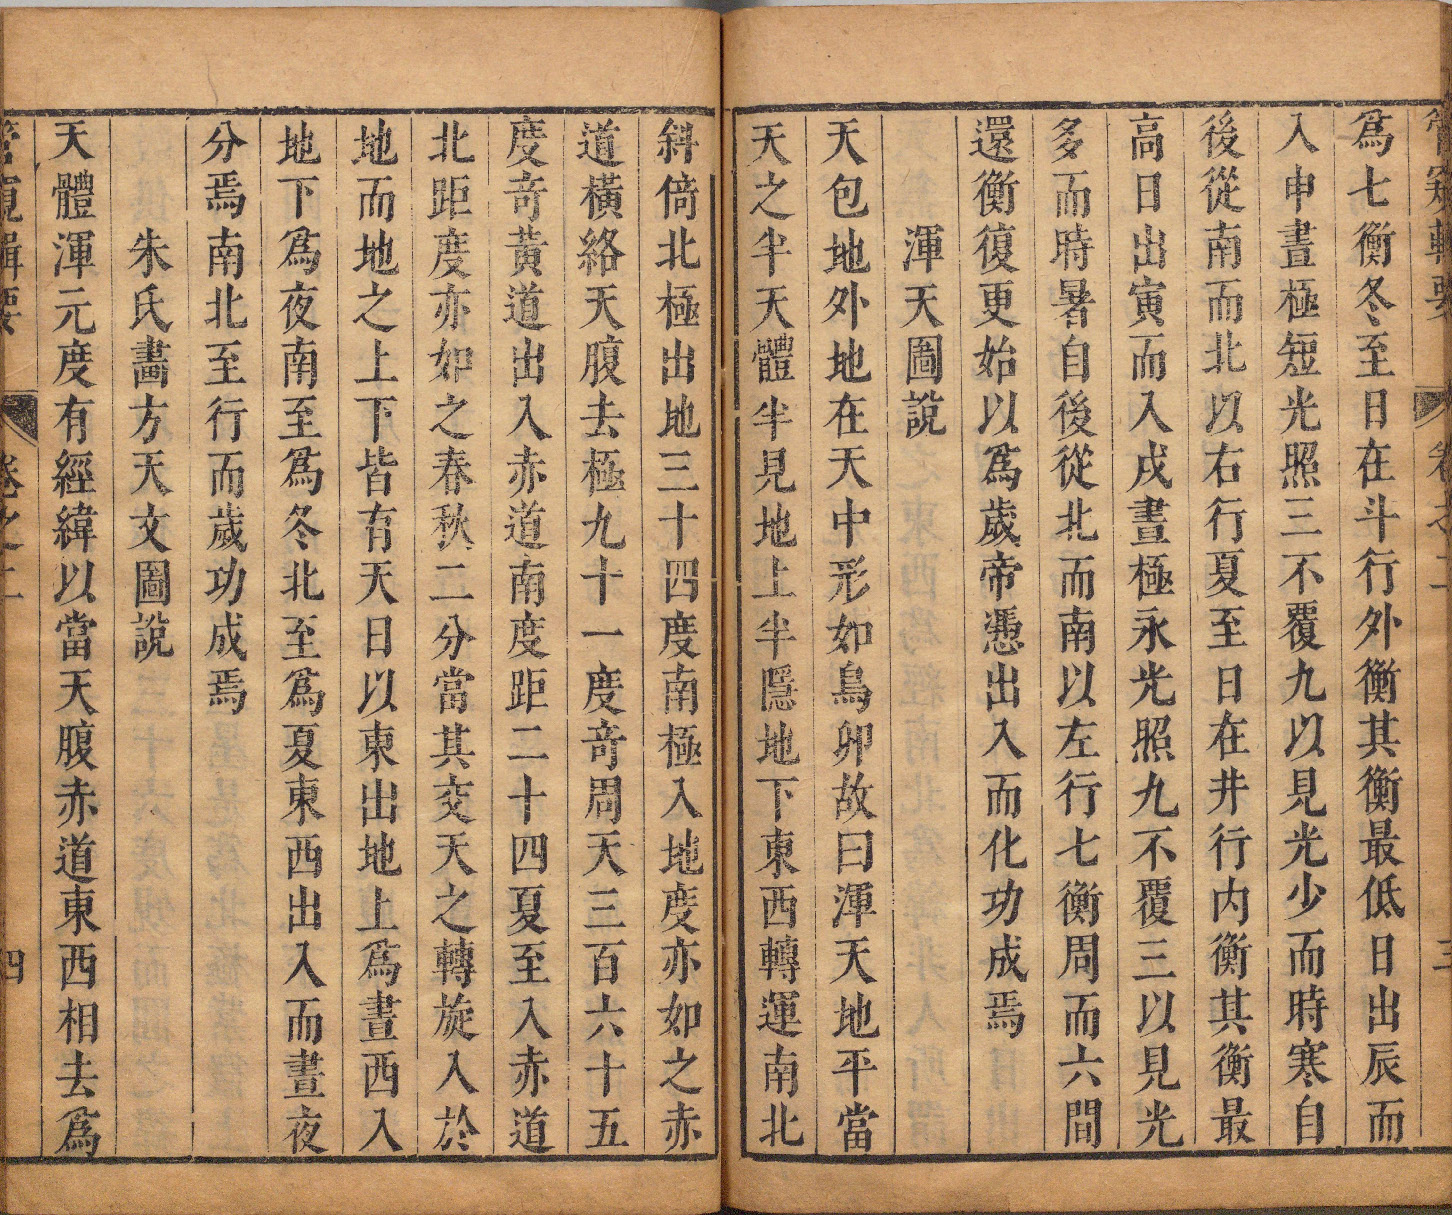 管窺輯要
卷之二
三
爲七衡冬至日在斗行外衡其衡最低日出辰而
入申晝極短光照三不覆九以見光少而時寒自
後從南而北以右行夏至日在井行内衡其衡最
高日出寅而入戌晝極永光照九不覆三以見光
多而時暑自後從北而南以左行七衡周而六間
還衡復更始以爲歲帝憑出入而化功成焉
渾天圖說
天包地外地在天中形如鳥卵故曰渾天地平當
天之半天體半見地上半隱地下東西轉運南北
斜倚北極出地三十四度南極入地度亦如之赤
道橫絡天腹去極九十一度竒周天三百六十五
度竒黃道出入赤道南度距二十四夏至入赤道
北距度亦如之春秋二分當其交天之轉旋入於
地而地之上下皆有天日以東出地上爲晝西入
地下爲夜南至爲冬北至爲夏東西出入而晝夜
分焉南北至行而歲功成焉
朱氏畵方天文圖說
天體渾元度有經緯以當天腹赤道東西相去爲
管窺輯要
卷之二
四